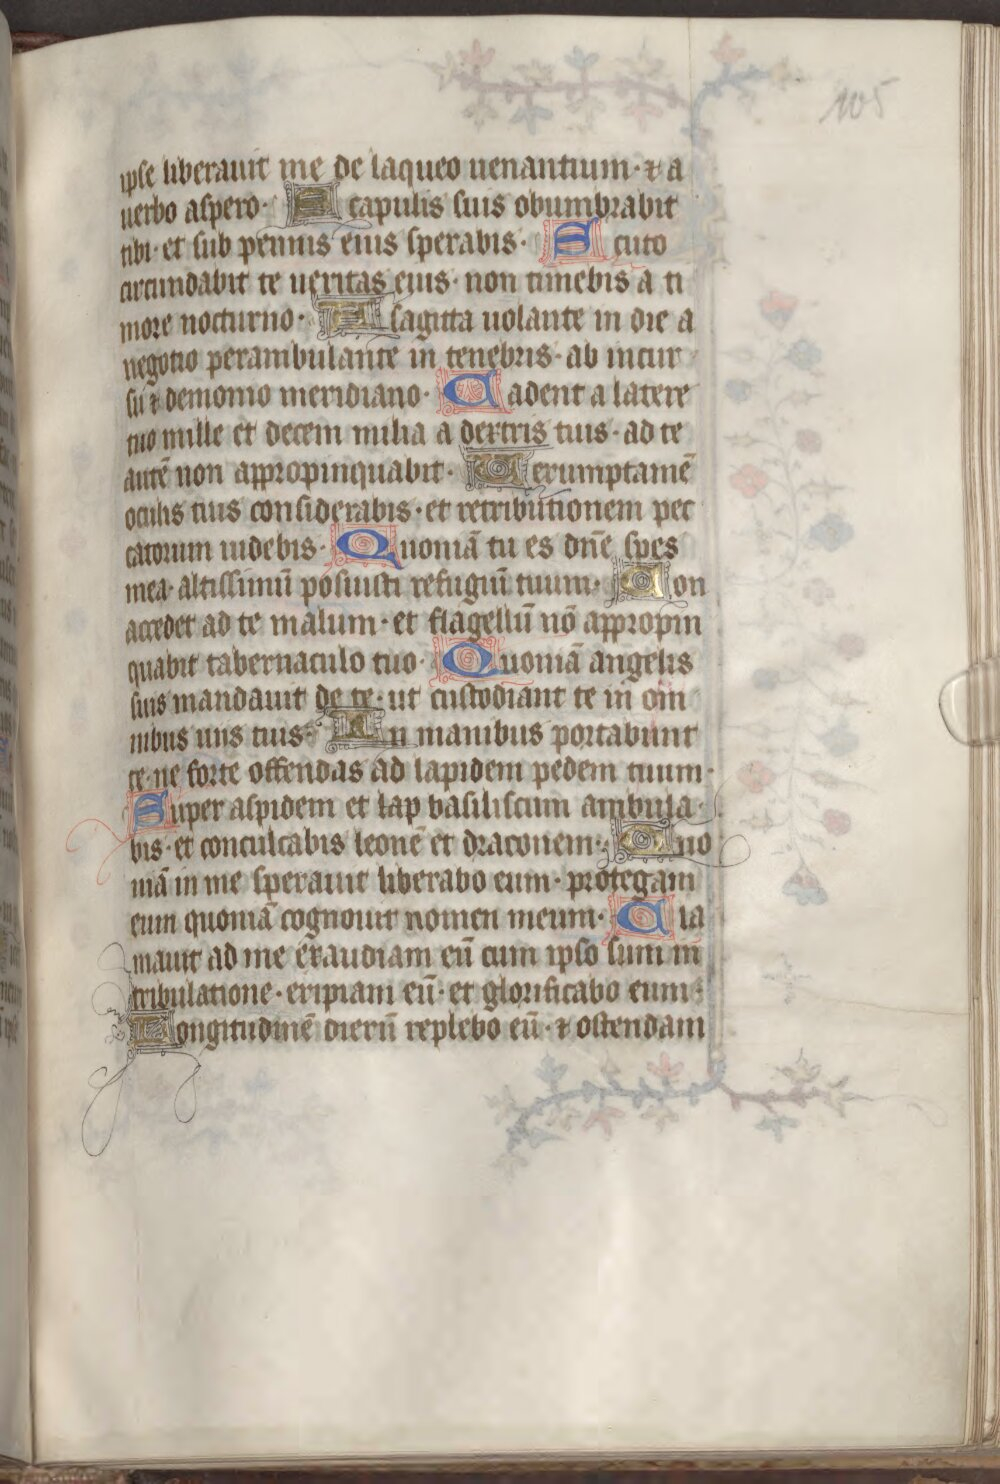 105
ipse liberauit me de laqueo uenantium· ⁊ a
uerbo aspero· Scapulis suis obumbrabit
tibi· et sub pennis eius sperabis· Scuto
circundabit te ueritas eius· non timebis a ti
more nocturno· A sagitta uolante in die a
negotio perambulante in tenebris· ab incur
su ⁊ demonio meridiano· Cadent a latere
tuo mille et decem milia a dextris tuis· ad te
autē non appropinquabit· Uerumptamē
oculis tuis considerabis· et retributionem pec
catorum uidebis· Quoniā tu es dn̄e spes
mea· altissimū posuisti refugiū tuum· Non
accedet ad te malum· et flagellū nō appropin
quabit tabernaculo tuo· Quoniā angelis
suis mandauit de te· ut custodiant te in om̄
nibus uiis tuis· In manibus portabunt
te· ne forte offendas ad lapidem pedem tuum·
Super aspidem et tap basiliscum ambula
bis· et conculcabis leonē et draconem· Quo
niā in me sperauit liberabo eum· protegam
eum quoniā cognouit nomen meum· Cla
mauit ad me exaudiam eū cum ipso sum in
tribulatione· eripiam eū· et glorificabo eum·
Longitudinē dierū replebo eū· ⁊ ostendam